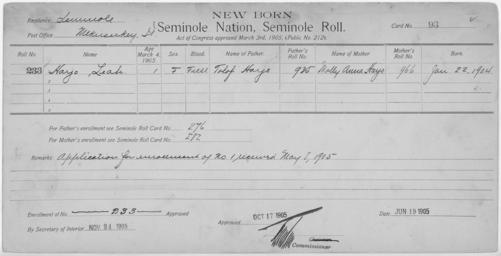 NEW BORN
Residence, Seminole
Seminole Nation, Seminole Roll.
Card No. 93
Post Office
Act of Congress approved March 3rd, 1905, (Public No. 212).
Roll No. Name Age March 4, 1905 Sex. Blood. Name of Father. Father's Roll No. Name of Mother Mother's Roll No. Born.
233 Harjo, Leah 1 F Full Harjo Molly Anna Harjo 966 Jan 22, 1904
For Father's enrollment see Seminole Roll Card No. 276
For Mother's enrollment see Seminole Roll Card No. 282
Remarks: Application for enrollment of No. 1 received May 8, 1905
Enrollment of No. 233 Approved
By Secretary of Interior NOV 24 1905
Approved OCT 17 1905
Commissioner
Date JUN 19 1905